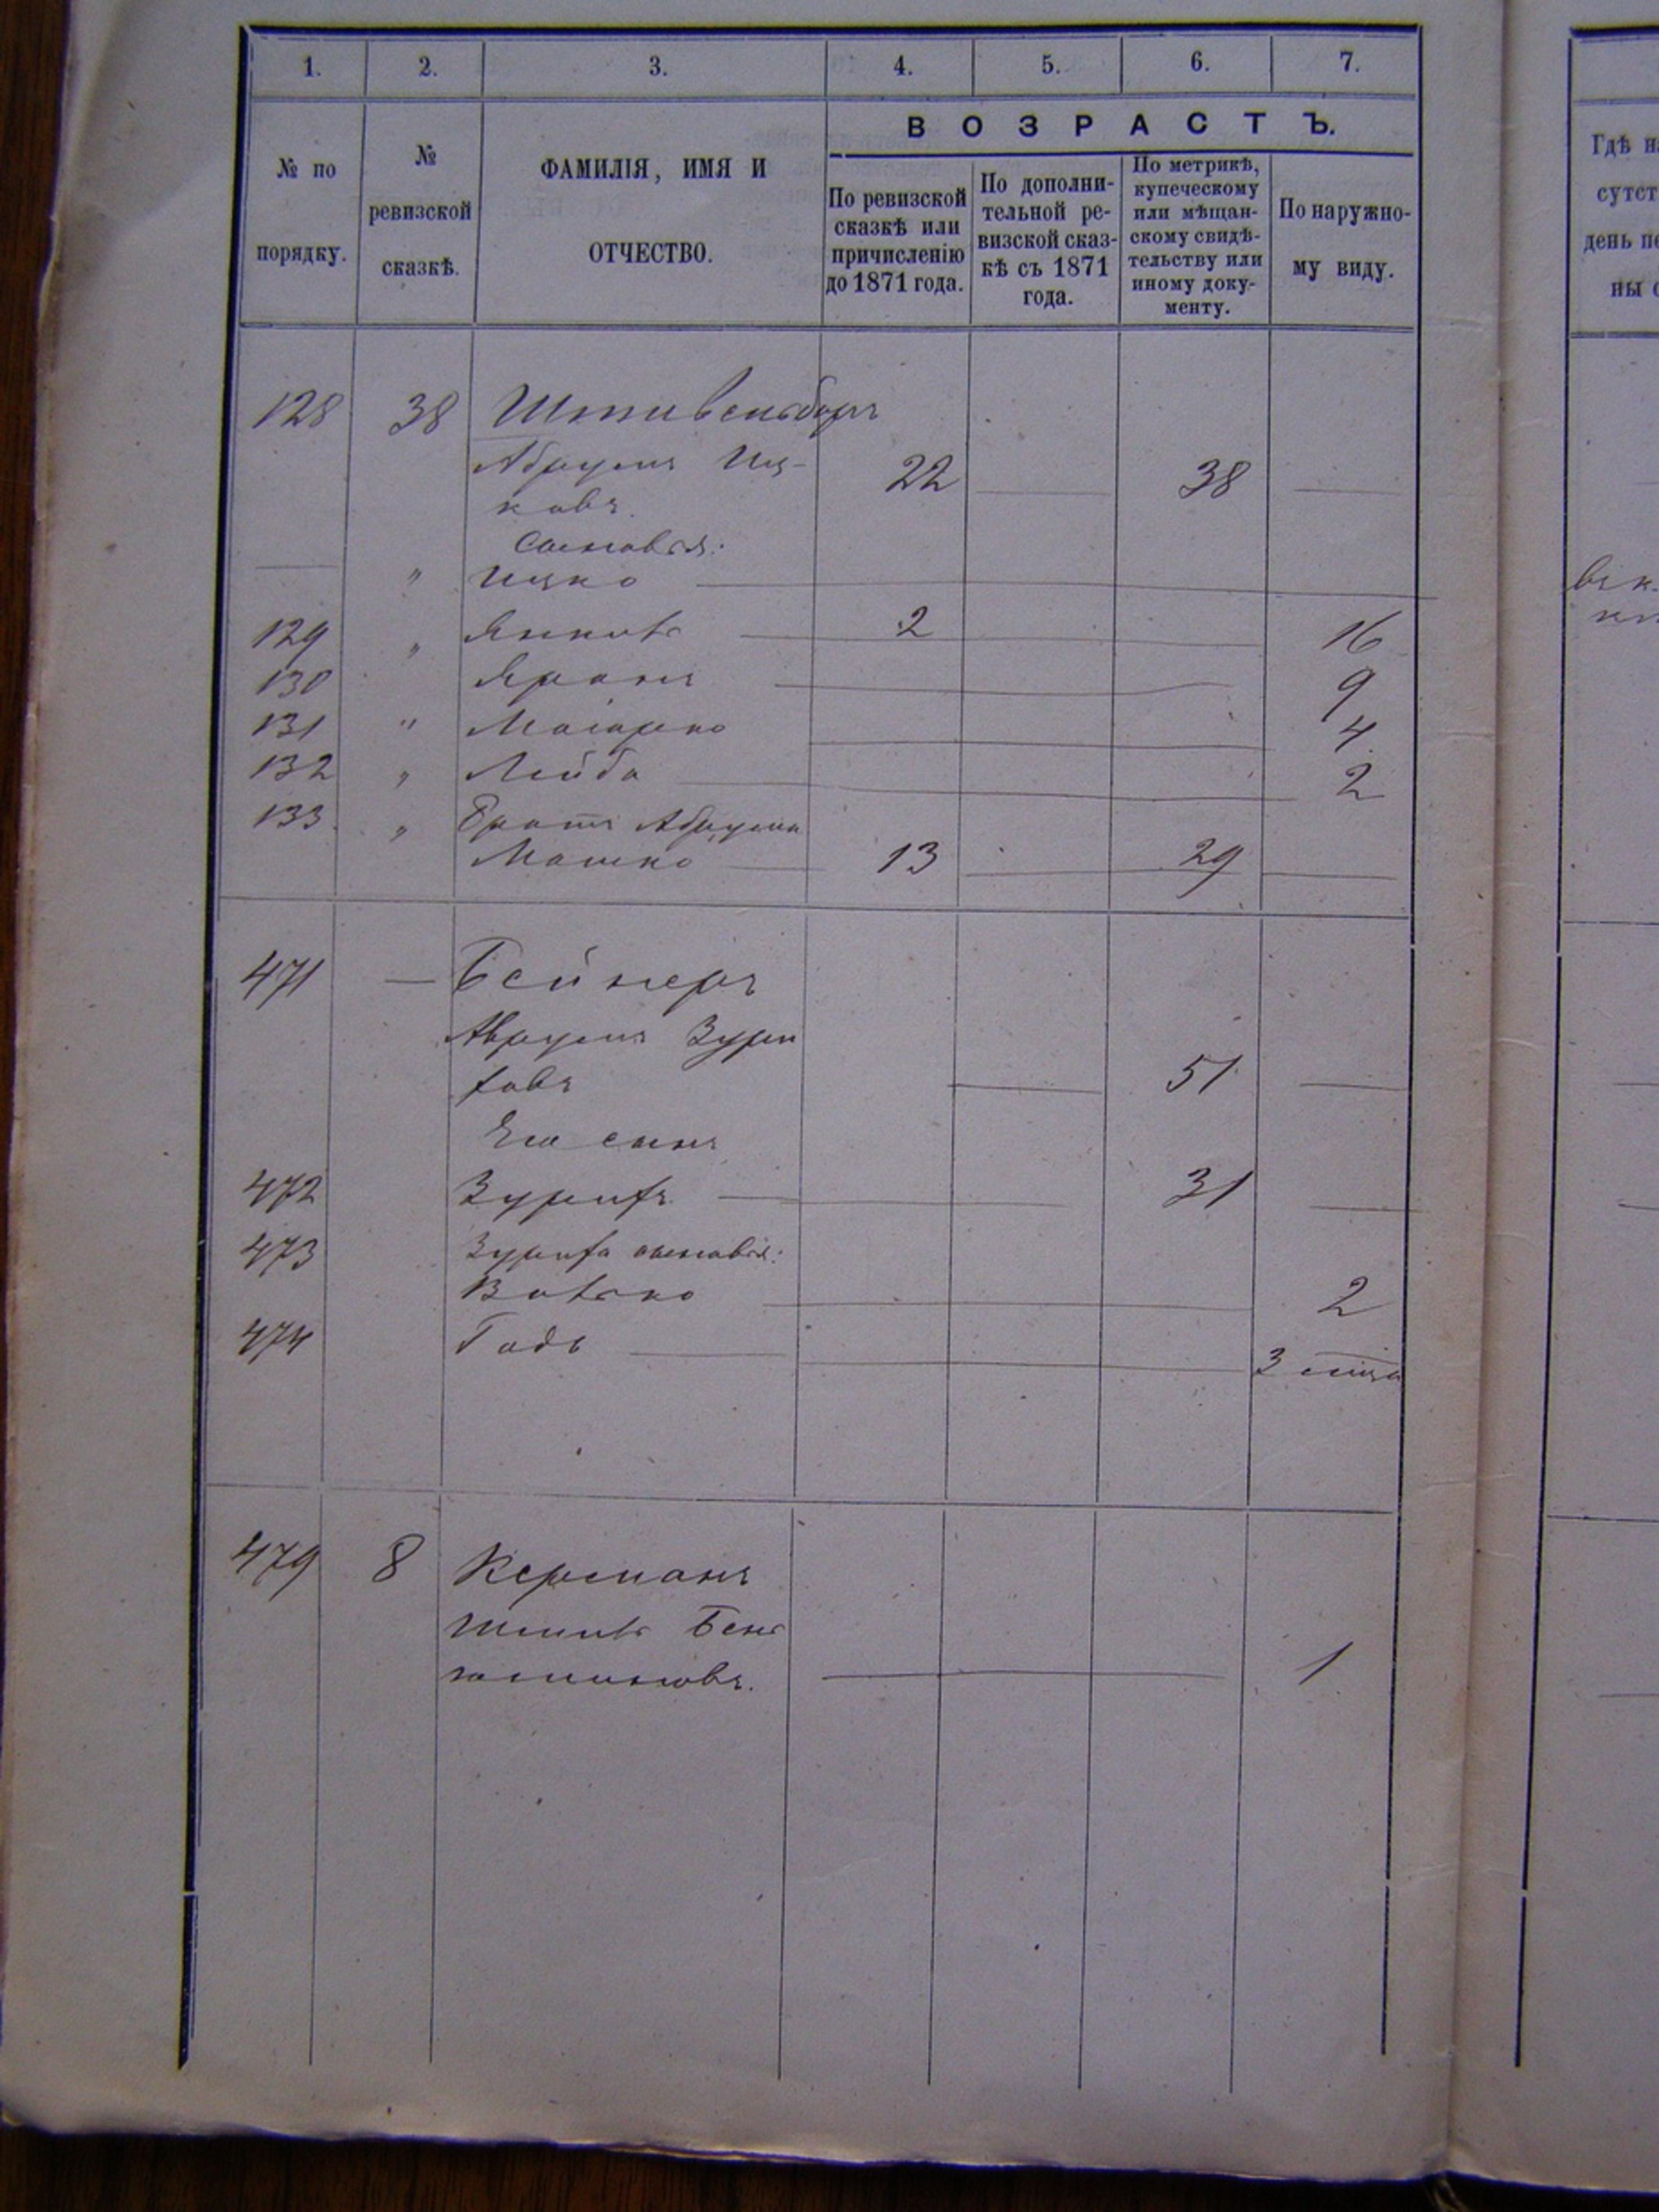 1. 2. 3. 4. 5. 6. 7.
№ по порядку.
№ ревизской сказкѣ.
ФАМИЛІЯ, ИМЯ И ОТЧЕСТВО.
ВОЗРАСТЪ.
По ревизской сказкѣ или причисленію до 1871 года.
По дополнительной ревизской сказкѣ съ 1871 года.
По метрикѣ, купеческому или мѣщанскому свидѣтельству или иному документу.
По наружному виду.
Гдѣ н
сутст
день пе
ны с
128 38
Абрумъ Иц-
ковъ. 22 38
Сыновья:
" Ицко
129 " 2 16
130 9
131 " 4
132 " Лейба 2
133 " Братъ Абрума
Мошко 13 29
471 — Бейнеръ
Аврумъ Зури
фовъ 51
Его сынъ
472 Зурифъ 31
473 Зурифа сыновья:
2
474 Гадь 3
479 8 Керманъ
Бень
юминовъ. 1